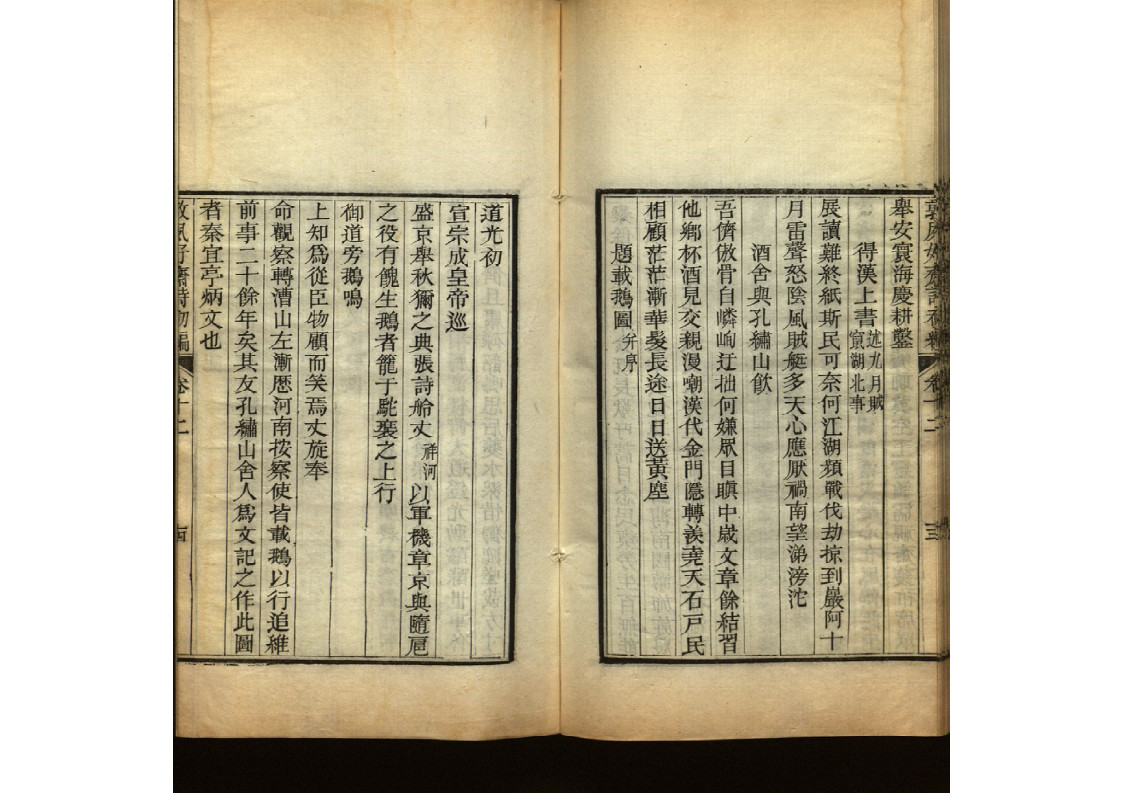 敦夙好齋詩初編 卷十二 三
舉安寰海慶耕鑿
得漢上書 述九月賊竄湖北事
展讀難終紙斯民可奈何江湖頻戰伐劫掠到巖阿十
月雷聲怒陰風賊艇多天心應厭禍南望涕滂沱
酒舍與孔繡山飲
吾儕傲骨自嶙峋迂拙何嫌眾目瞋中歲文章餘結習
他鄉杯酒見交親漫嘲漢代金門隱轉羨堯天石戶民
相顧茫茫漸華髮長途日日送黃塵
題載鵝圖 并序
道光初
宣宗成皇帝巡
盛京舉秋獮之典張詩舲丈 祥河 以軍機章京與隨扈
之役有餽生鵝者籠于駝褭之上行
御道旁鵝鳴
上知為從臣物顧而笑焉丈旋奉
命觀察轉漕山左漸歷河南按察使皆載鵝以行追維
前事二十餘年矣其友孔繡山舍人為文記之作此圖
者秦宜亭炳文也
敦夙好齋詩初編 卷十二 四